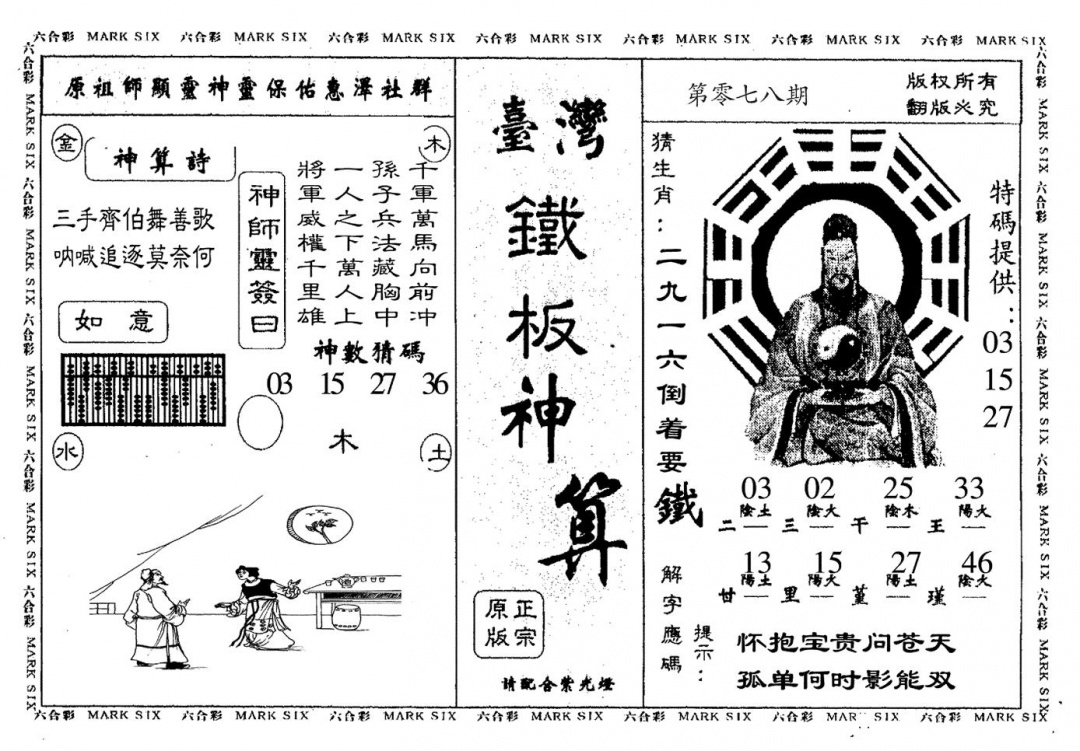 六合彩 MARK SIX 六合彩 MARK SIX 六合彩 MARK SIX 六合彩 MARK SIX 六合彩 MARK SIX 六合彩 MARK SIX 六合彩 MARK SIX
六合彩 MARK SIX 六合彩 MARK SIX 六合彩 MARK SIX 六合彩 MARK SIX 六合彩 MARK SIX
原祖師顯靈神靈保佑惠澤社群
金
木
神算詩
三手齊伯舞善歌
呐喊追逐莫奈何
如意
神師靈簽曰
千軍萬馬向前冲
孫子兵法藏胸中
一人之下萬人上
將軍威權千里雄
神數猜碼
03 15 27 36
木
水
土
臺灣
鐵板神算
正宗
原版
請配合紫光燈
第零七八期
版权所有
翻版必究
猜生肖:二九一六倒着要鐵
特碼提供:
03
15
27
03 02 25 33
陰土 陰火 陰木 陽火
二 三 干 王
13 15 27 46
陽土 陽火 陽土 陰火
甘 里 堇 瑾
解字應碼
提示:
怀抱宝贵问苍天
孤单何时影能双
六合彩 MARK SIX 六合彩 MARK SIX 六合彩 MARK SIX 六合彩 MARK SIX 六合彩 MARK SIX
六合彩 MARK SIX 六合彩 MARK SIX 六合彩 MARK SIX 六合彩 MARK SIX 六合彩 MARK SIX 六合彩 MARK SIX 六合彩 MARK SIX